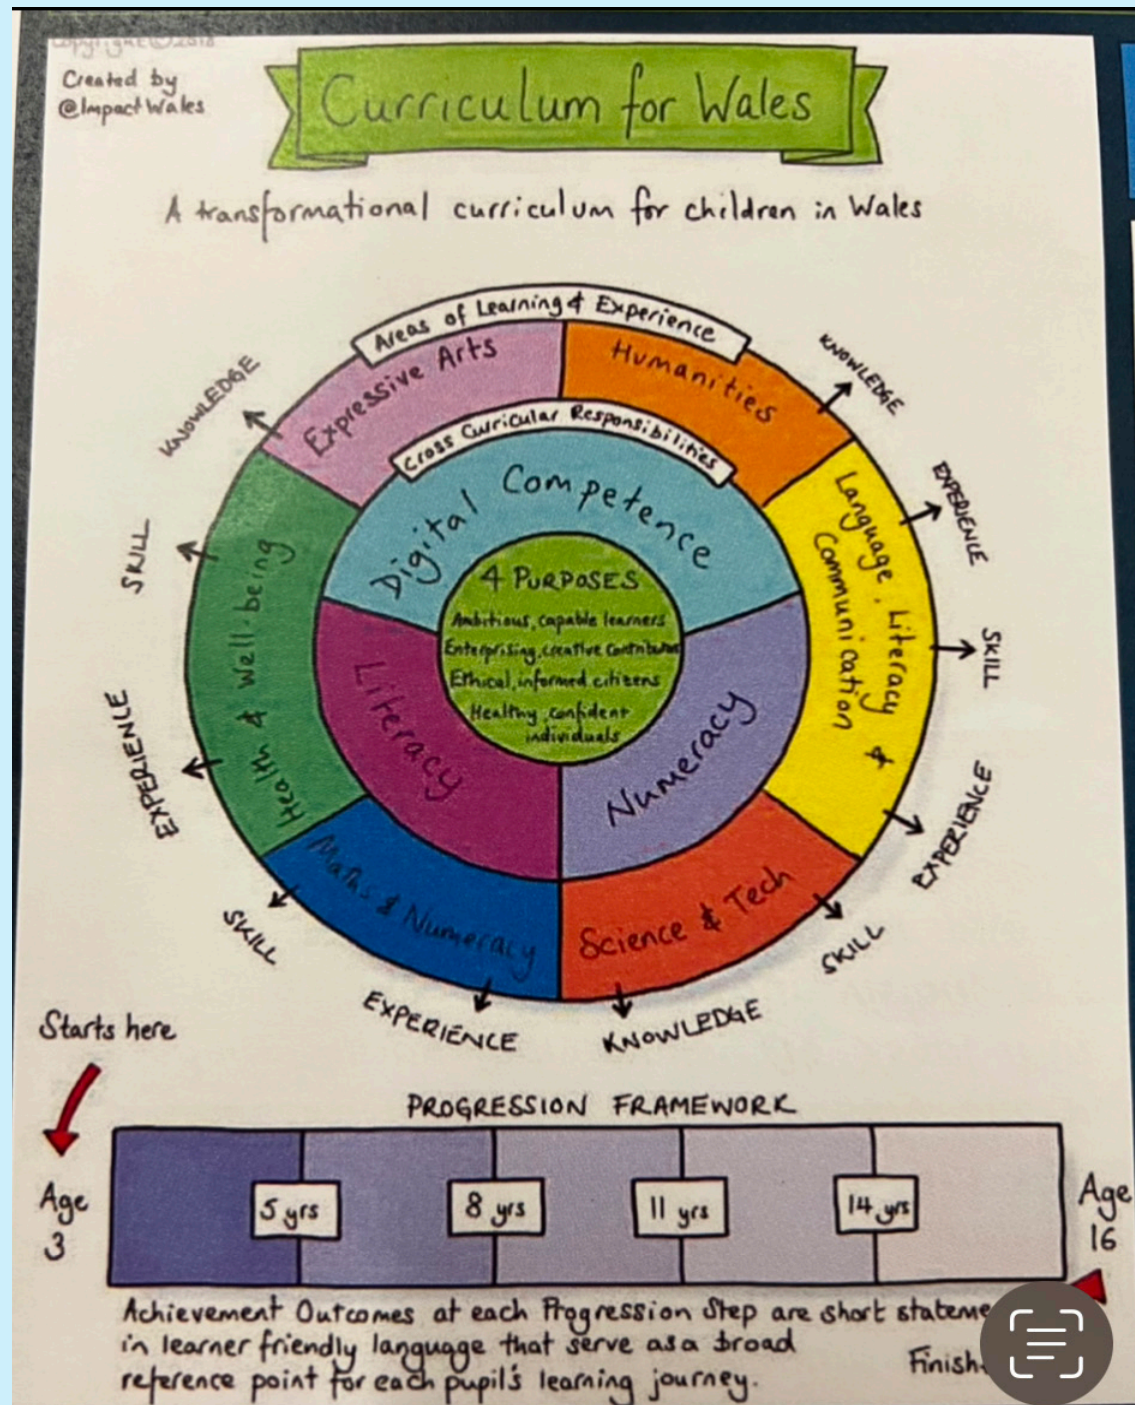 Copyright © 2018
Created by
@ImpactWales
Curriculum for Wales
A transformational curriculum for children in Wales
Areas of Learning & Experience
Expressive Arts
Humanities
Language, Literacy &
Communication
Science & Tech
Maths & Numeracy
Health & Well-being
Cross Curricular Responsibilities
Digital Competence
Numeracy
Literacy
4 PURPOSES
Ambitious, capable learners
Enterprising, creative contributors
Ethical, informed citizens
Healthy, confident
individuals
KNOWLEDGE
EXPERIENCE
SKILL
EXPERIENCE
SKILL
KNOWLEDGE
EXPERIENCE
SKILL
EXPERIENCE
SKILL
KNOWLEDGE
Starts here
PROGRESSION FRAMEWORK
Age
3
5 yrs
8 yrs
11 yrs
14 yrs
Age
16
Achievement Outcomes at each Progression Step are short
in learner friendly language that serve as a broad
reference point for each pupil's learning journey.